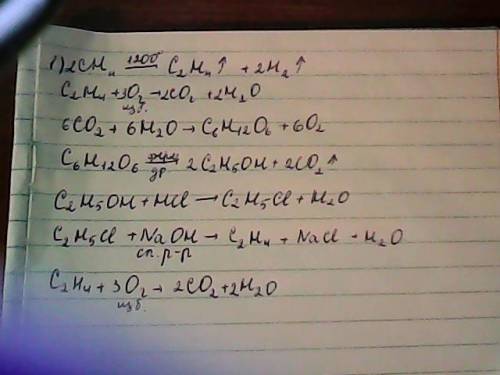 1) 2CH₄ =1200= C₂H₄↑ + 2H₂↑
C₂H₄ + 3O₂ → 2CO₂ + 2H₂O
изб.
6CO₂ + 6H₂O → C₆H₁₂O₆ + 6O₂
C₆H₁₂O₆ = 2C₂H₅OH + 2CO₂↑
др
C₂H₅OH + HCl → C₂H₅Cl + H₂O
C₂H₅Cl + NaOH → C₂H₄ + NaCl + H₂O
сп. р-р
C₂H₄ + 3O₂ → 2CO₂ + 2H₂O
изб.